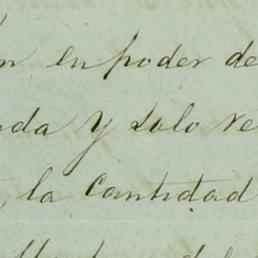 n en poder de
da y solo re
, la cantidad